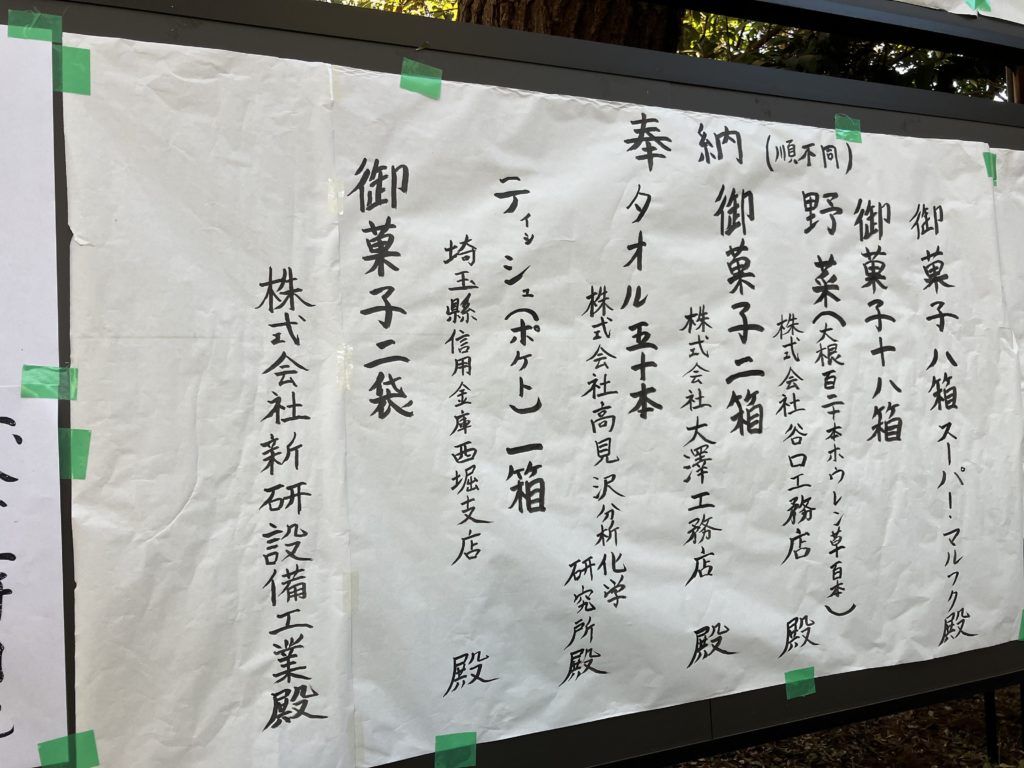 奉納(順不同)
御菓子八箱 スーパー・マルフク殿
御菓子十八箱
野菜(大根百二十本ホウレン草百本)
株式会社谷口工務店 殿
御菓子二箱
株式会社大澤工務店 殿
タオル五十本
株式会社高見沢分析化学
研究所殿
ティッシュ(ポケト)一箱
埼玉縣信用金庫西堀支店 殿
御菓子二袋
株式会社新研設備工業殿